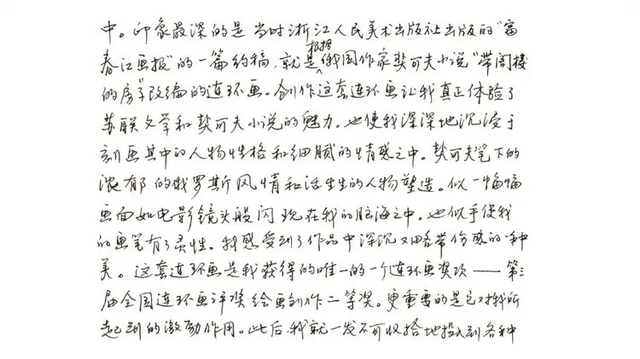 中。印象最深的是当时浙江人民美术出版社出版的“富
春江画报”的一篇约稿,就是根据俄国作家契可夫小说“带阁楼
的房子”改编的连环画。创作这套连环画让我真正体验了
苏联文学和契可夫小说的魅力。也使我深深地沉浸于
刻画其中的人物性格和细腻的情感之中。契可夫笔下的
浓郁的俄罗斯风情和活生生的人物塑造。似一幅幅
画面如电影镜头般闪现在我的脑海之中。也似乎使我
的画笔有了灵性。我感受到了作品中深沉又略带伤感的一种
美。这套连环画是我获得的唯一的一个连环画奖项——第三
届全国连环画评奖绘画创作二等奖。更重要的是它对我所
起到的激励作用。此后,我就一发不可收拾地投入到各种